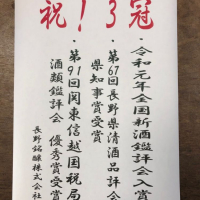 祝！3冠
・令和元年全国新酒鑑評会入賞
・第67回長野県清酒品評会
県知事賞受賞
・第91回関東信越国税局
酒類鑑評会 優秀賞受賞
長野銘醸株式会社